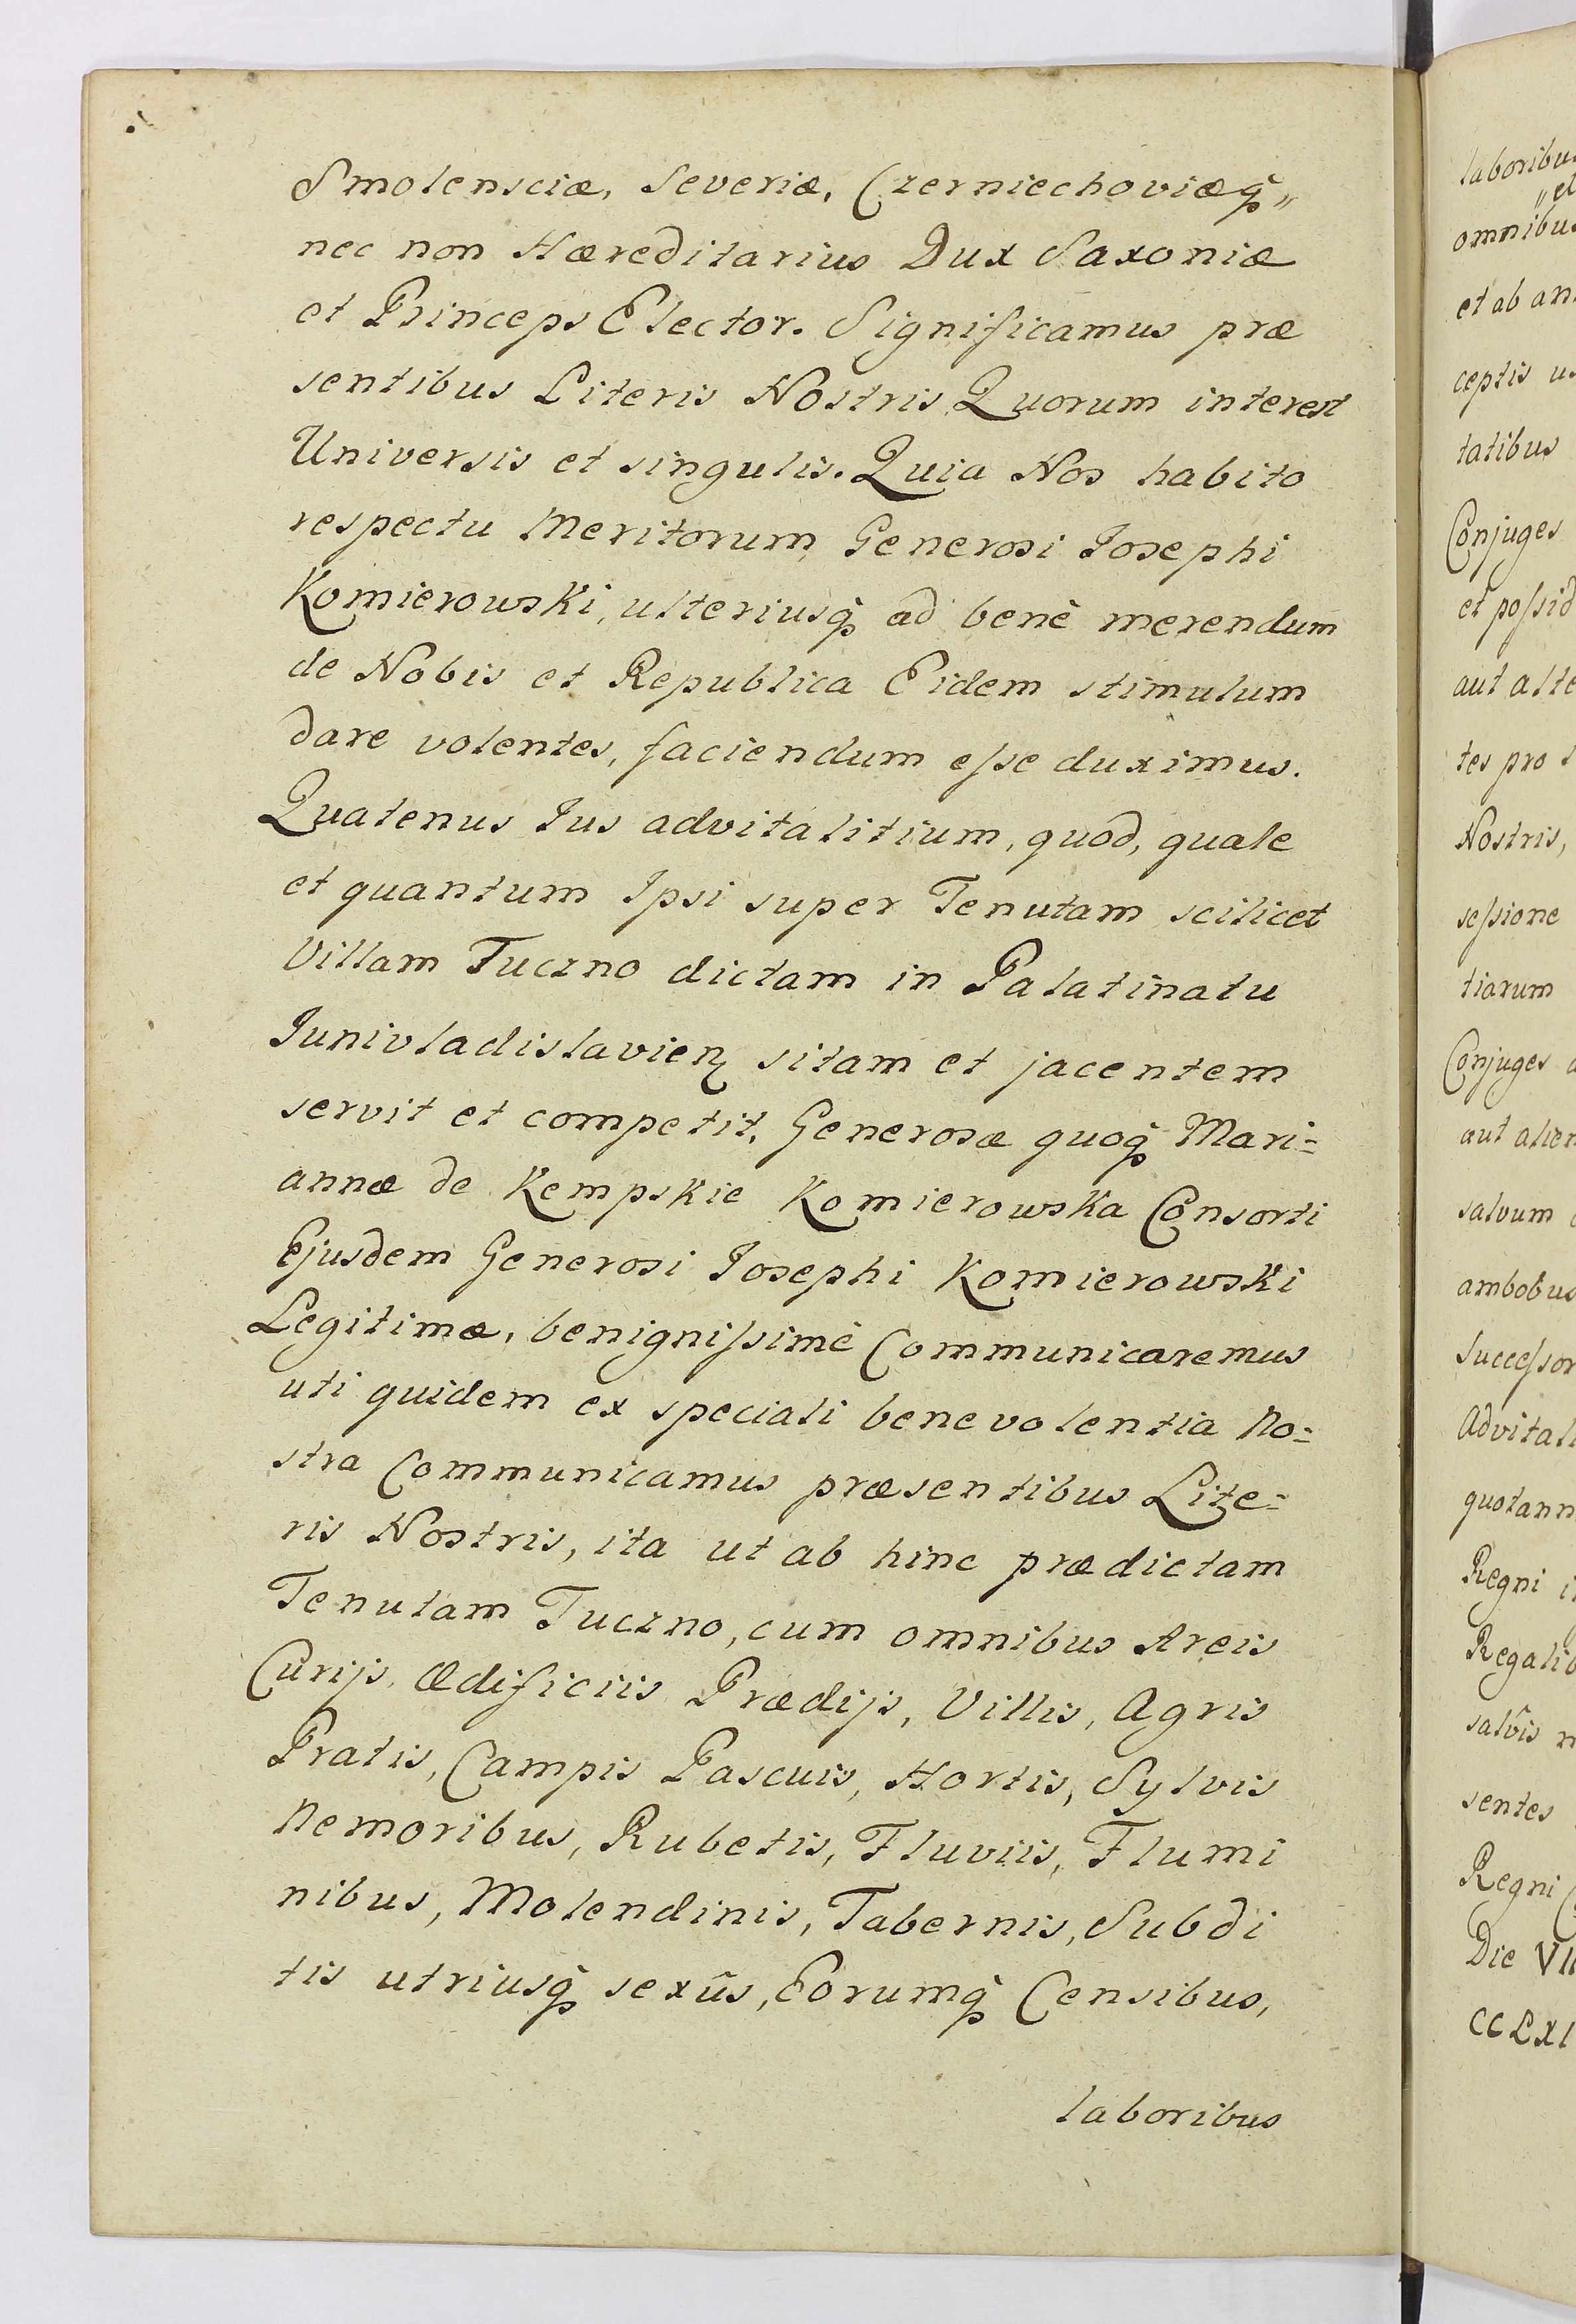 Smolensciæ, Severiæ, Czerniechoviæq̃„
nec non Hæreditarius Dux Saxoniæ
et Princeps Elector. Significamus præ
sentibus Literis Nostris Quorum interest
Universis et singulis. Quia Nos habito
respectu Meritorum Generosi Iosephi
Komierowski, ulteriusq̃ ad benè merendum
de Nobis et Republica Eidem stimulum
dare volentes, faciendum eſse duximus.
Quatenus Ius advitalitium, quod, quale
et quantum Ipsi super Tenutam scilicet
Villam Tuczno dictam in Palatinatu
Junivladislavien̄ sitam et jacentem
servit et competit, Generosæ quoq̃ Mari=
annæ de Kempskie Komierowska Consorti
Ejusdem Generosi Iosephi Komierowski
Legitimæ, benigniſsimè Communicaremus
uti quidem ex speciali benevolentia No=
stra Communicamus præsentibus Lite=
ris Nostris, ita ut ab hinc prædictam
Tenutam Tuczno, cum omnibus Areis
Curijs, Ædificiis Prædijs, Villis, Agris
Pratis, Campis Pascuis, Hortis, Sylvis
Nemoribus, Rubetis, Fluviis, Flumi
nibus, Molendinis, Tabernis, Subdi
tis utriusq̃ sexûs, Eorumq̃ Censibus,
laboribus
laboribus
„et
omnibus
et ab an
ceptis u
tatibus
Conjuges
et poſsid
aut alte
tes pro
Nostris,
seſsione
tiarum
Conjuges a
aut alien
salvum
ambobus
Succeſsor
Advitali
quotann
Regni i
Regalib
salvis n
sentes
Regni C
Die VII
CCLXI